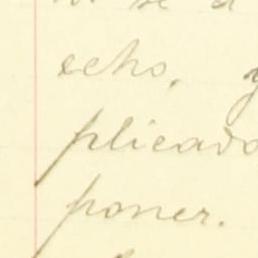 echo,
plicado
poner.